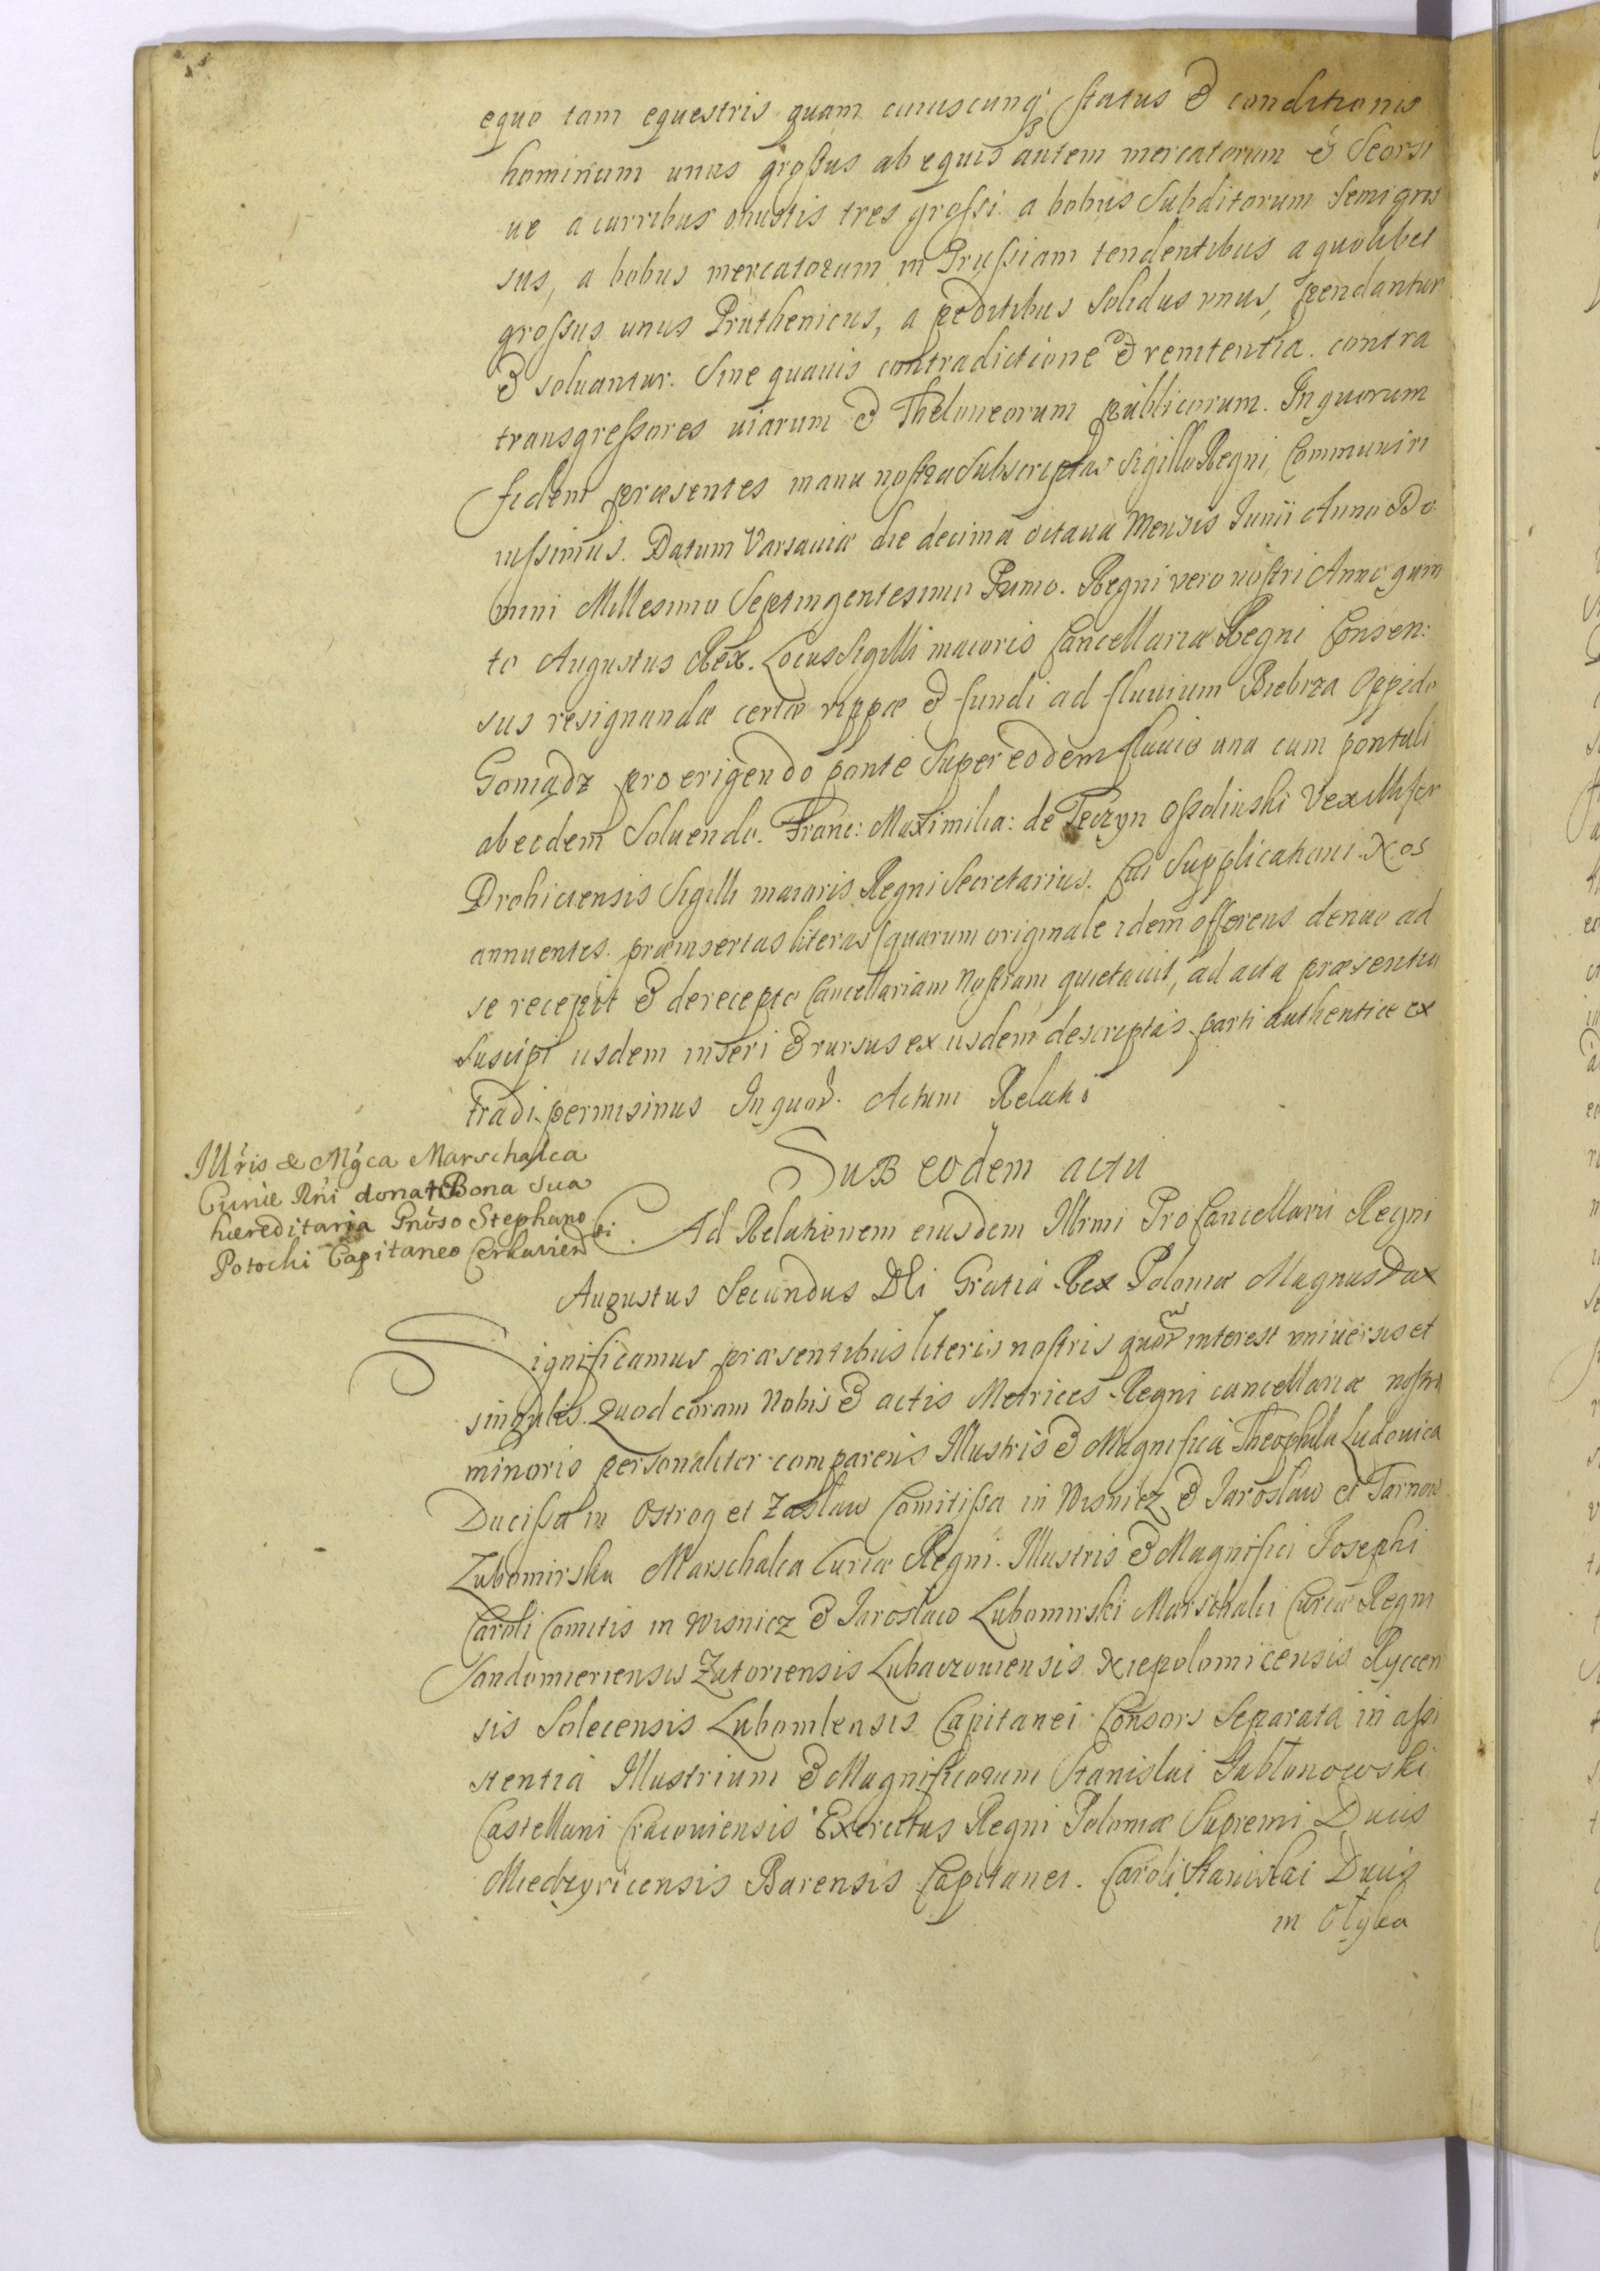 equo tam equestris quam cuiuscunq₃ status & conditionis
hominum unus grossus ab equis autem mercatorum & seorsi
ue a curribus onustis tres grossi a bobus Subditorum Semigros
sus, a bobus mercatorum in Prussiam tendentibus a quolibet
grossus unus Pruthenicus, a peditibus Solidus unus, pendantur
& soluantur. Sine quauis contradictione & renitentia. contra
transgressores uiarum & Theloneorum publicorum. In quorum
fidem præsentes manu nostra Subscriptas Sigillo Regni, Communiri
iussimus. Datum Varsauiæ die decima octaua Mensis Iunii Anno Do
mini Millesimo Septingentesimo Primo. Regni vero nostri Anno quin
to Augustus Rex. Locus Sigilli maioris Cancellariæ Regni Consen:
sus resignandæ certæ rippæ & fundi ad fluuium Biebrza Oppido
Goniądz pro erigendo ponte Super eodem fluuio una cum pontali
ab eodem Soluendo. Franc: Maximilia: de Tęczyn Ossolinski Vexillifer
Drohiciensis Sigilli maioris Regni Secretarius. Cui Supplicationi Nos
annuentes. præinsertas literas (quarum originale idem offerens denuo ad
se recepit & de recepto Cancellariam Nostram quietauit, ad acta præsentia
Suscipi iisdem inseri & rursus ex iisdem descriptas parti authentice ex
tradi permisimus In quor. Actum Relati
Sub eodem actu
Illris & Mgca Marschalca
Curiæ Rni donat Bona sua
hæreditaria Gnoso Stephano
Potocki Capitaneo Cerkavien
Ad Relationem eiusdem Illrmi ProCancellarii Regni
Augustus Secundus DEi Gratia Rex Poloniæ Magnus Dux
Significamus præsentibus literis nostris quor interest uniuersis et
singulis. Quod coram Nobis & actis Metrices Regni cancellariæ nostræ
minoris personaliter comparens Illustris & Magnifica Theophila Ludouica
Ducissa in Ostrog et Zasław Comitissa in Wisnicz & Iarosław et Tarnow
Lubomirska Marschalca Curiæ Regni. Illustris & Magnifici Iosephi
Caroli Comitis in Wisnicz & Iarosław Lubomirski Marschalci Curiæ Regni
Sandomieriensis Zatoriensis Lubaczouiensis Niepolomicensis Ryccen
sis Solecensis Lubomlensis Capitanei Consors Separata in assi
stentia Illustrium & Magnificorum Stanislai Jabłonowski
Castellani Cracouiensis Exercitus Regni Poloniæ Supremi Ducis
Miedzyricensis Barensis Capitanei. Caroli Stanislai Ducis
in Ołyka